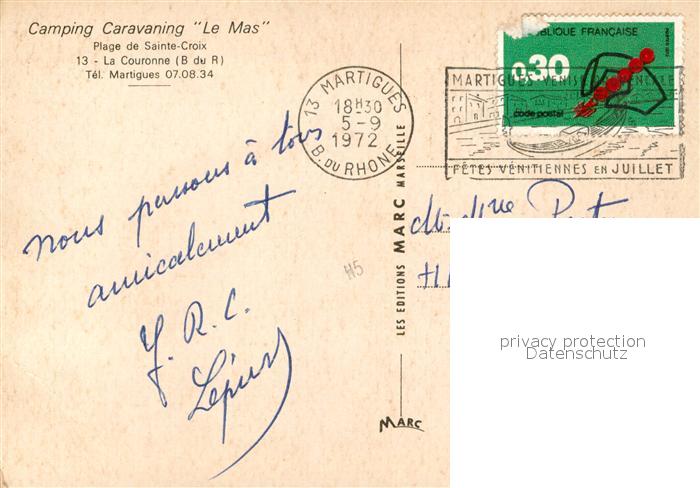 Camping Caravaning "Le Mas"
Plage de Sainte-Croix
13 - La Couronne (B du R)
Tél. Martigues 07.08.34
RÉPUBLIQUE FRANÇAISE
0,30
code postal
13 MARTIGUES
18H30
5-9
1972
B. DU RHONE
MARTIGUES VENISE
FÊTES VÉNITIENNES EN JUILLET
nous pensons à tous
amicalement
J. R. C.
H5
LES EDITIONS MARC MARSEILLE
MARC
privacy protection
Datenschutz